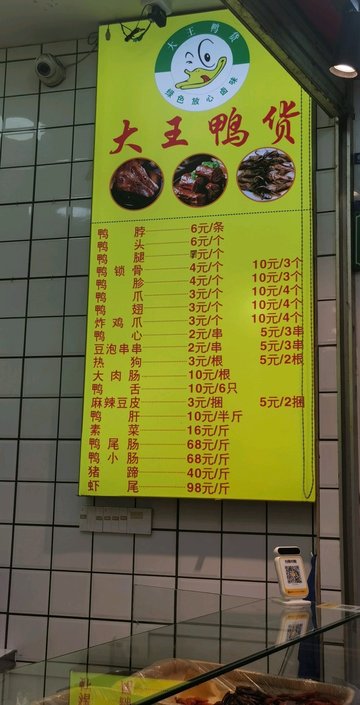 大王鸭货
绿色放心卤味
大王鸭货
鸭脖 6元/条
鸭头 6元/个
鸭腿 元/个
鸭锁骨 4元/个 10元/3个
鸭胗 4元/个 10元/3个
鸭爪 3元/个 10元/4个
鸭翅 3元/个 10元/4个
炸鸡爪 3元/个 10元/4个
鸭心 2元/串 5元/3串
豆泡串串 2元/串 5元/3串
热狗 3元/根 5元/2根
大肉肠 10元/根
鸭舌 10元/6只
麻辣豆皮 3元/捆 5元/2捆
鸭肝 10元/半斤
素菜 16元/斤
鸭尾肠 68元/斤
鸭小肠 68元/斤
猪蹄 40元/斤
虾尾 98元/斤